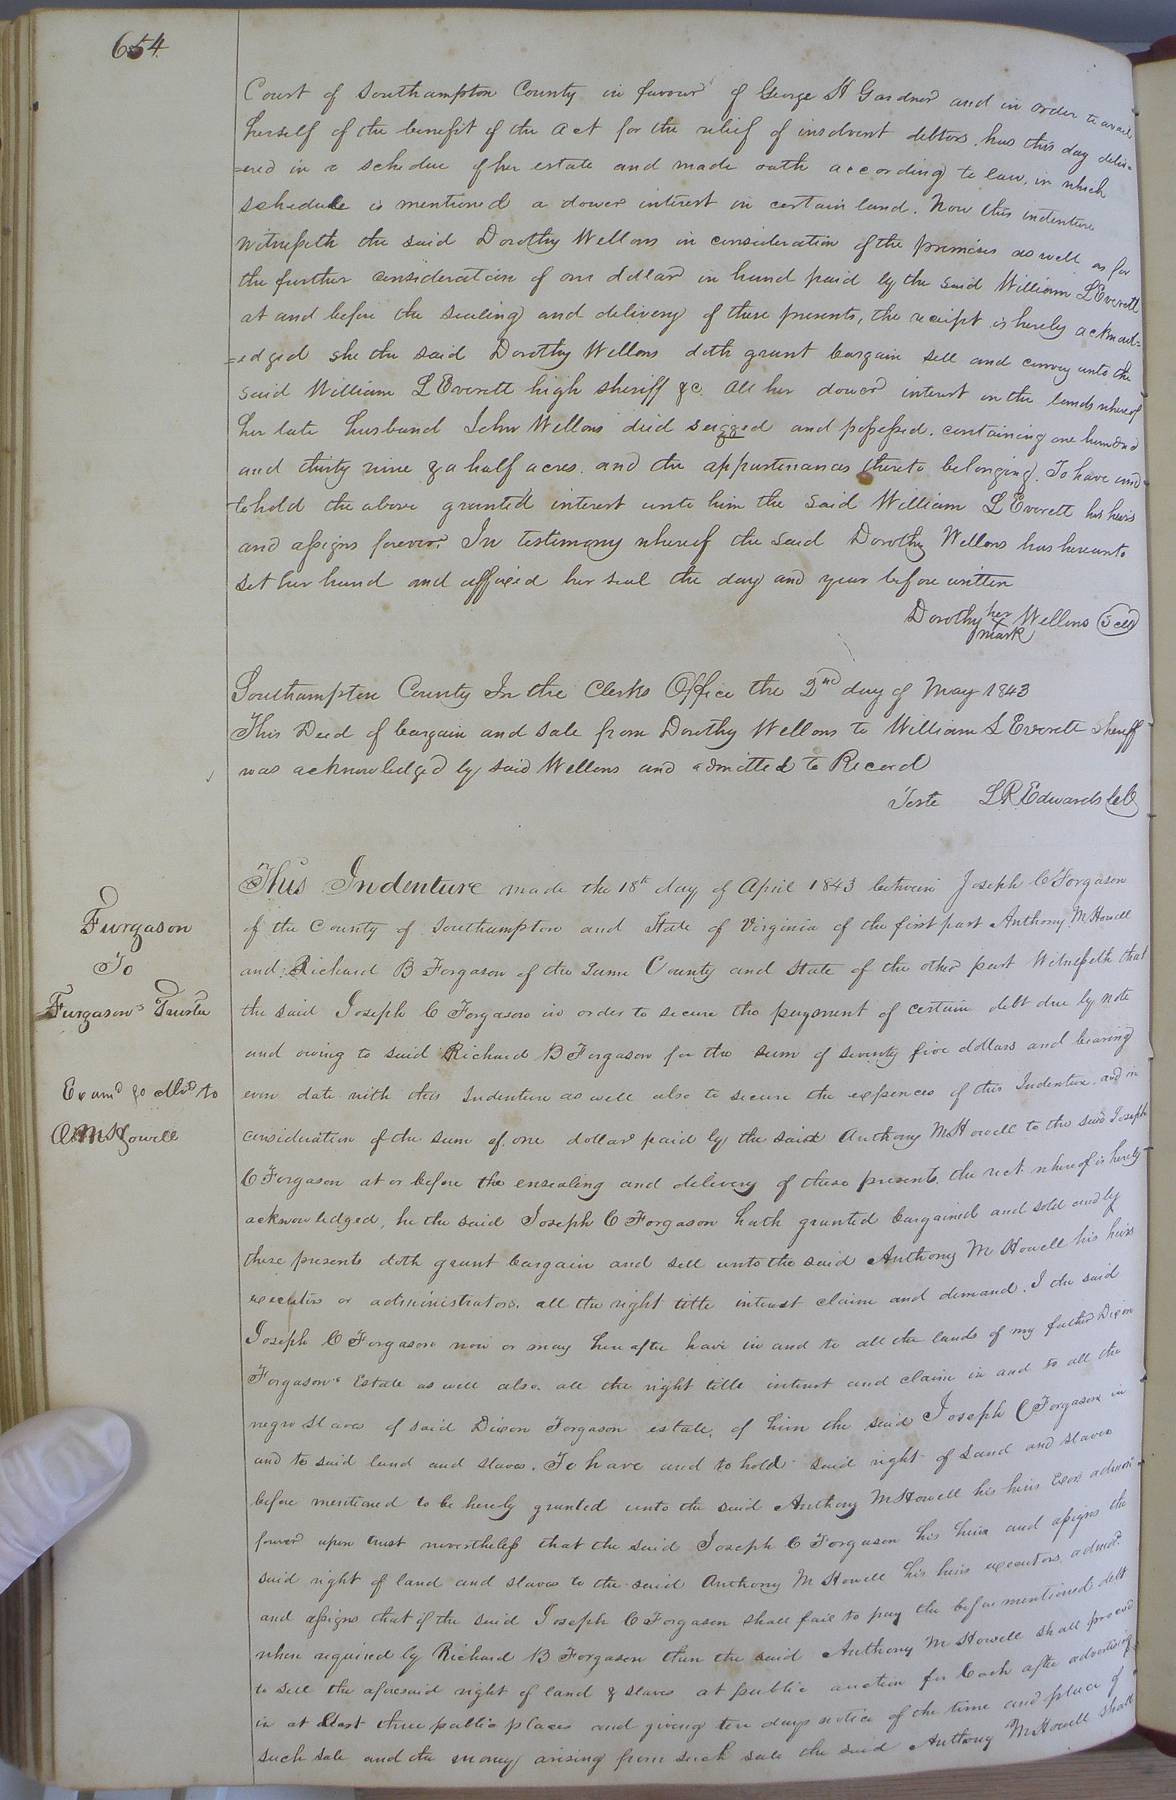 654
Court of Southampton County in favour of George H Gardner and in order to avail
herself of the benefit of the act for the relief of insolvent debtors, has this day deliv=
=ered in a schedue of her estate and made oath according to law, in which
schedule is mentioned a dower interest in certain land. Now this indenture
Witnesseth the said Dorothy Wellons in consideration of the premises as well as for
the further consideration of one dollar in hand paid by the said William L Everett
at and before the sealing and delivery of these presents, the receipt is hereby acknowl=
=edged she the said Dorothy Wellons doth grant bargain sell and convey unto the
said William L Everett high sheriff &c. all her dower interest in the lands whereof
her late husband John Wellons died seizzed and possessed. containing one hundred
and thirty nine & a half acres. and the appurtenances thereto belonging. To have and
to hold the above granted interest unto him the said William L Everett his heirs
and assigns forever. In testimony whereof the said Dorothy Wellons has hereunto
set her hand and affixed her seal the day and year before written
Dorothy her Wellons Seal
mark
Southampton County In the Clerks Office the 2nd day of May 1843
This Deed of bargain and sale from Dorothy Wellons to William L Everett Sheriff
was acknowledged by said Wellons and admitted to Record
Teste L R Edwards CC
Furgason
To
Furgason's Trustee
Examd & delivd to
A M Howell
This Indenture made the 18th day of April 1843 between Joseph C Forgason
of the County of Southampton and State of Virginia of the first part Anthony M Howell
and Richard B Forgason of the Same County and State of the other part Witnesseth that
the said Joseph C Forgason in order to secure the payment of certain debt due by note
and owing to said Richard B Forgason for the sum of seventy five dollars and bearing
even date with this Indenture as well also to secure the expences of this Indenture. and in
consideration of the sum of one dollar paid by the said Anthony M Howell to the said Joseph
C Forgason at or before the ensealing and delivery of these presents. the rect whereof is hereby
acknowledged, he the said Joseph C Forgason hath granted bargained and sold and by
these presents doth grant bargain and sell unto the said Anthony M Howell his heirs
executors or administrators. all the right title interest claim and demand. I the said
Joseph C Forgason now or may here after have in and to all the lands of my father Dixon
Forgason's Estate as well also all the right title interest and claim in and to all the
negro slaves of said Dixon Forgason estate, of him the said Joseph C Forgason in
and to said land and slaves. To have and to hold said right of Land and slaves
before mentioned to be hereby granted unto the said Anthony M Howell his heirs Exors admin
forever upon trust nevertheless that the said Joseph C Forgason his heirs and assigns the
said right of land and slaves to the said Anthony M Howell his heirs executors, admr.
and assigns that if the said Joseph C Forgason shall fail to pay the before mentioned debt
when required by Richard B Forgason then the said Anthony M Howell shall proceed
to sell the aforesaid right of land & slaves at public auction for Cash after advertising
in at least three public places and giving ten days notice of the time and place of
such sale and the money arising from such sale the said Anthony M Howell shall